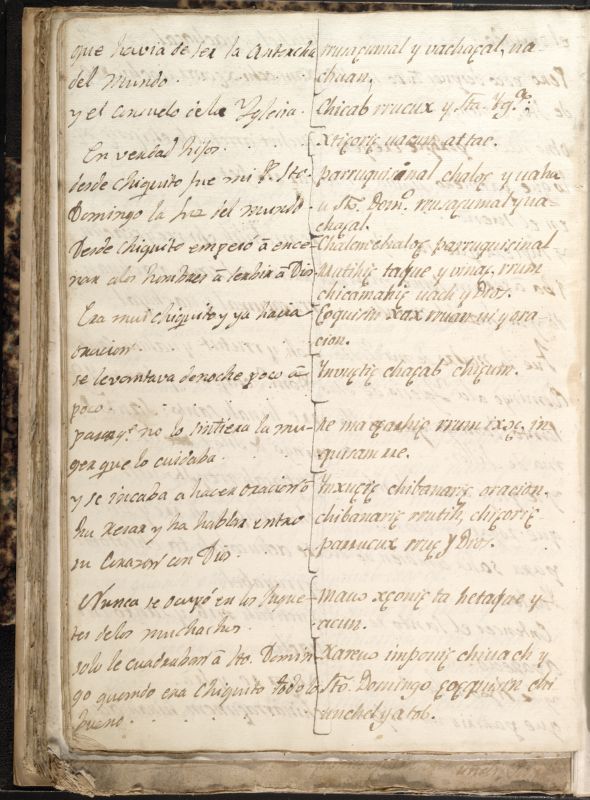 que havia de ser la Antorcha
del Mundo.
y el consuelo de la Yglesia.
En verdad hijos.
desde chiquito fue mi P. Sto.
Domingo la luz del mundo.
Desde chiquito empesó â ence-
ñar a los hombres â serbir â Dios
Era mui chiquito y ya hacia
oracion.
se levantava denoche poco â
poco
para q.e no lo sintiera la mu-
ger que lo cuidaba.
y se incaba a hacer oracion ô
ha Resar y ha hablar entro
su Corazon con Dios
Nunca se ocupó en los Jugue-
tes de los muchachos.
solo le cuadraban â Sto. Domin-
go quando era Chiquito todo lo
bueno.
rusaçumal y vachaçal, na-
chuan.
Chicab rrucux y sta. Yg.a
xtiçoriç uacun attac.
parruquisinal chaloç y
u sto. Dom.o rusaçumal y ua
chaçal.
Chalem chaloç parruquisinal
rrutihiç taque y vinaç rrum
chicamahiç uach y Dios.
Coquisin xax ruan ui y ora
cion.
Ynuictiç chaçab chiçum.
Re maççashiç rrum ixoç in-
quisam re.
Ynxuctiç chibanariç oracion.
chibanariç rrutih, chiçoriç
parrucux ruç y Dios.
maus xçoniç ta hetaque y
acun.
Xareus imponiç chiuach y
Sto. Domingo coquisin chi
unchel y atob.